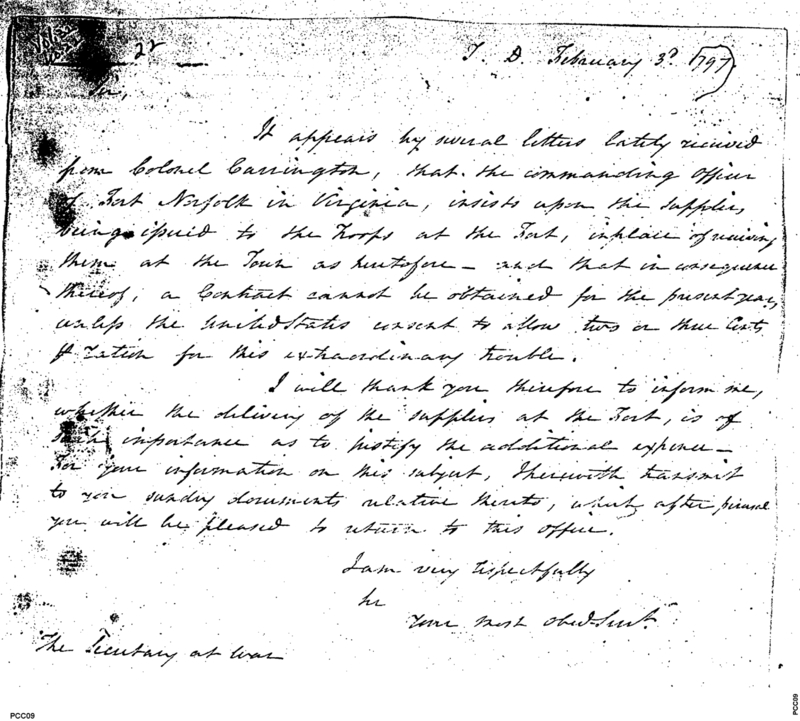 22
T. D. February 3d 1797
Sir,
It appears by several letters lately received
from Colonel Carrington, that the commanding Officer
of Fort Norfolk in Virginia, insists upon the supplies,
being issued to the Troops at the Fort, in place of receiving
them at the Town as heretofore – and that in consequence
thereof, a Contract cannot be obtained for the present year,
unless the United States consent to allow two or three Cents
ration for this extraordinary trouble.
I will thank you therefore to inform me,
whether the delivery of the supplies at the Fort, is of
such importance as to justify the additional expence –
For your information on this subject, I herewith transmit
to you sundry documents relative thereto, which after perusal
you will be pleased to return to this office.
I am very respectfully
Sir
Your most obed Servt
The Secretary at War
PCC09
PCC09